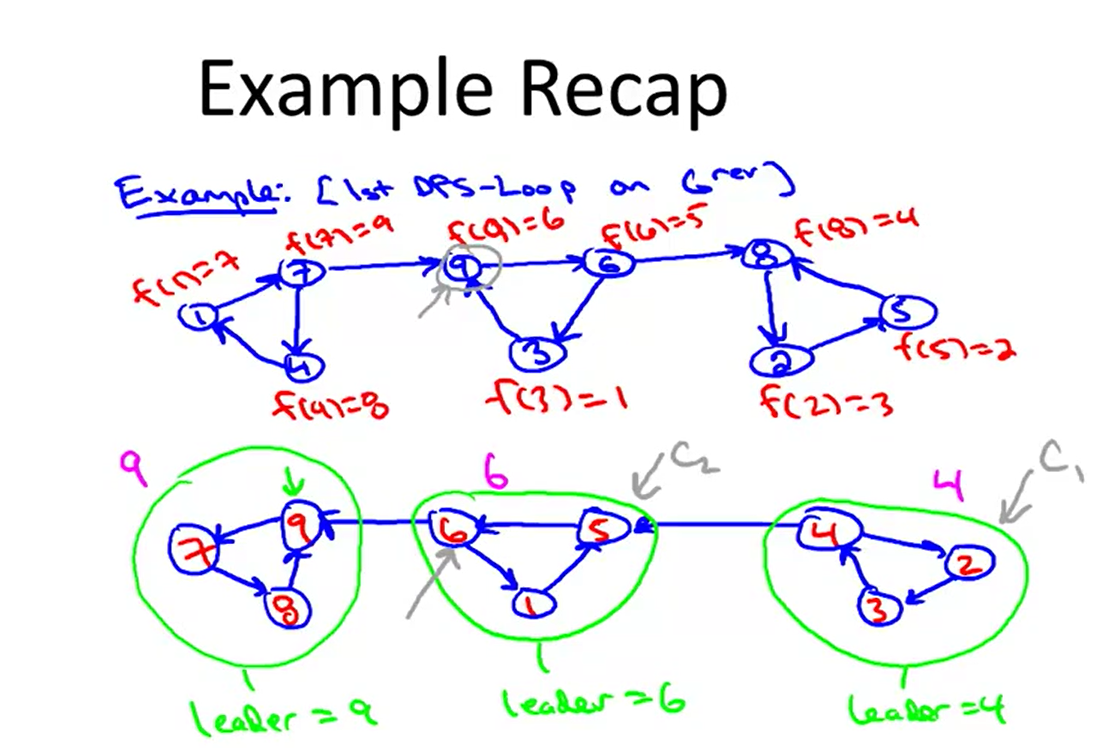 Example Recap
Example: [1st DFS-Loop on Grev]
f(1)=7 f(7)=9 f(9)=6 f(6)=5 f(8)=4
1 7 9 6 8 5
4 3 2
f(4)=8 f(3)=1 f(2)=3 f(5)=2
9 6 C2 4 C1
7 9 6 5 4 2
8 1 3
leader = 9 leader = 6 leader = 4